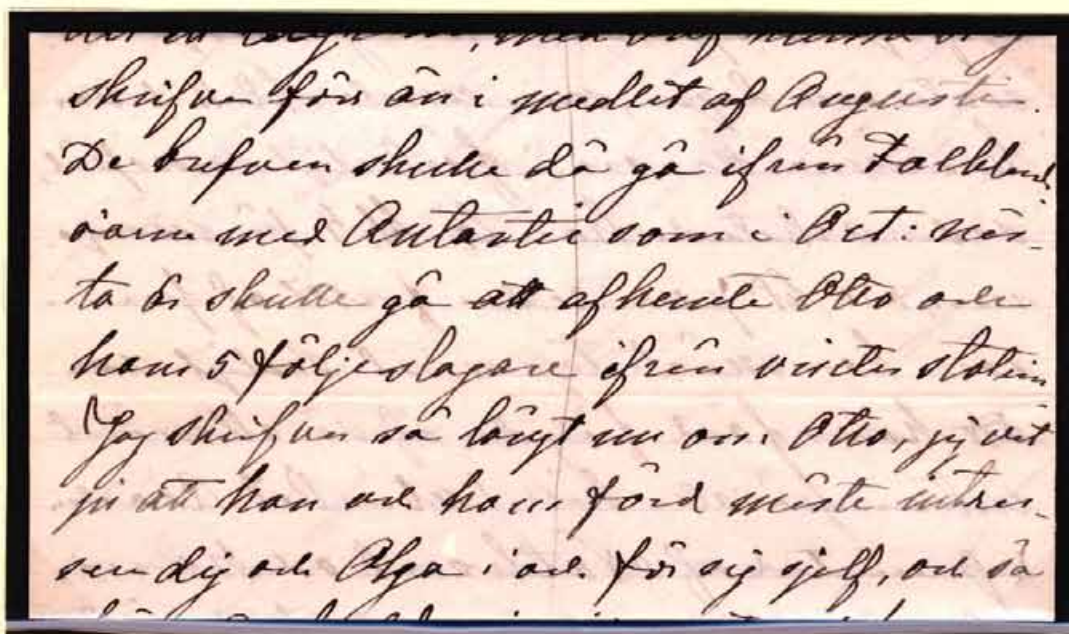 men bref måste
skrifvas för än i medlet af Augusti.
De brefven skulle då gå ifrån Falklands
öarne med Antarctic som i Oct: näs-
ta år skulle gå att afhemta Otto och
hans 5 följeslagare ifrån vinter station
Jag skrifver så långt nu om Otto, jag vet
ju att han och hans färd måste intres-
sera dig och Olga i och för sig sjelf, och så